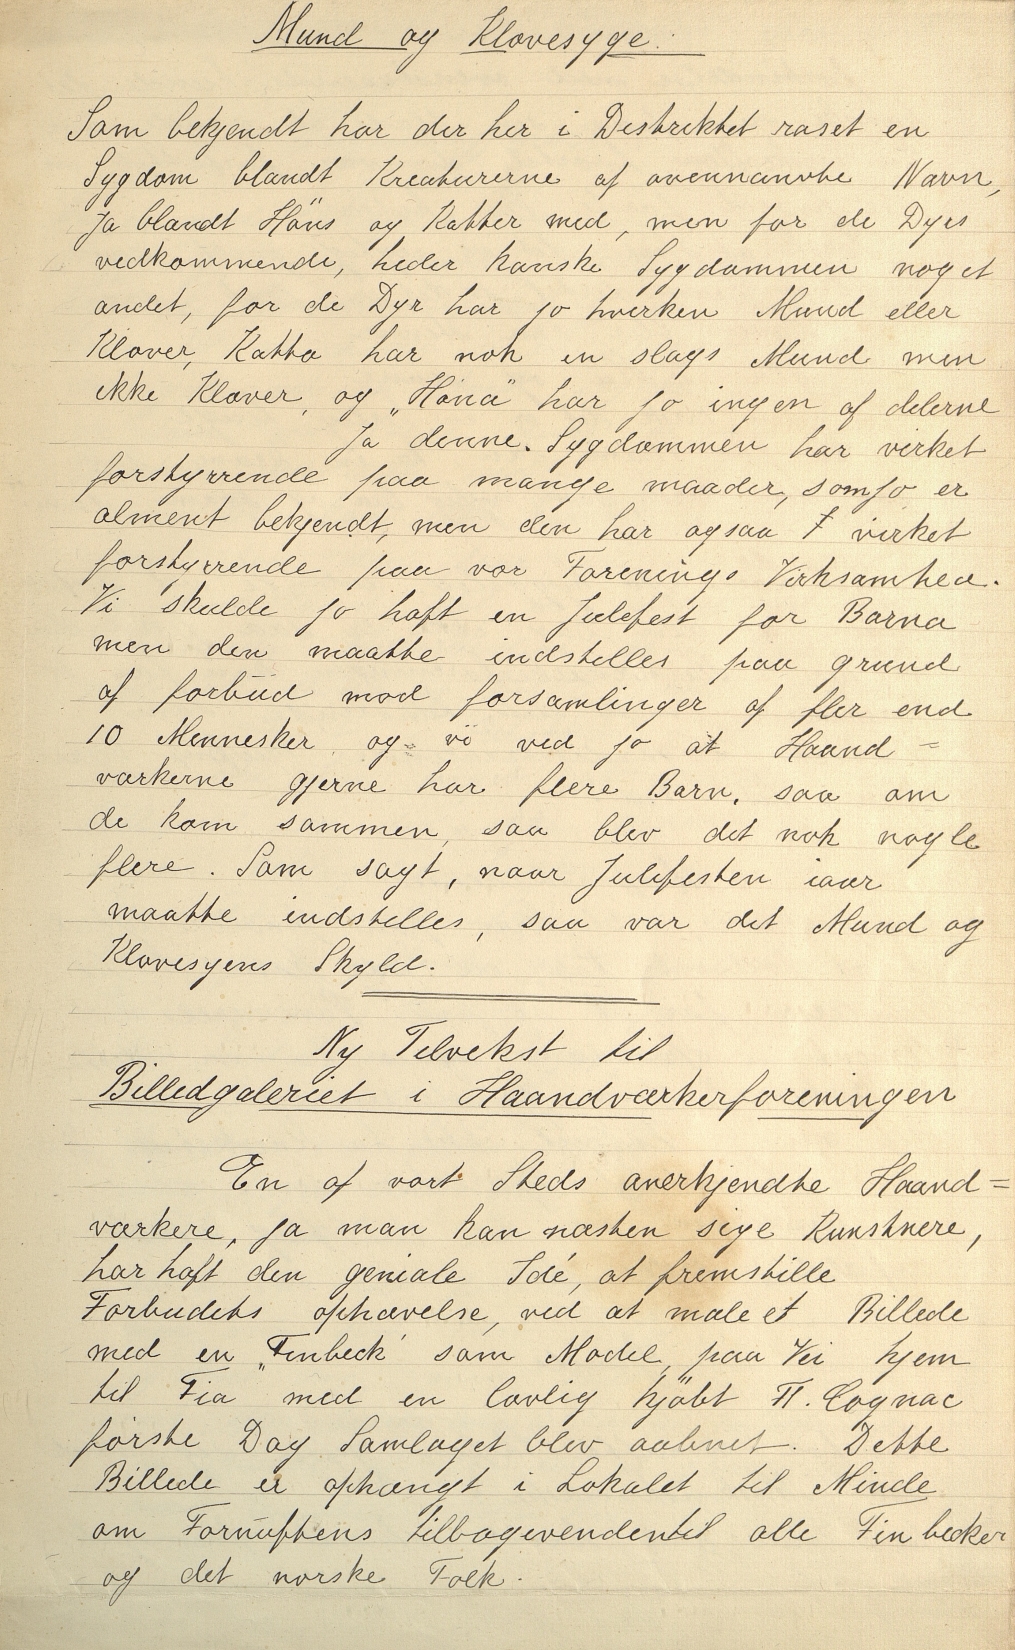 Mund og Klovesyge.
Som bekjendt har der her i Destriktet raset en
Sygdom blandt Kreaturerne af ovennævnte Navn,
Ja blandt Höns og Katter med, men for de Dyrs
vedkommende, heder kanske Sygdommen noget
andet, for de Dyr har jo hverken Mund eller
Klover, Katta har nok en slags Mund men
ikke Klover, og „Höna" har jo ingen af delerne
Ja denne. Sygdommen har virket
forstyrrende paa mange maader, som jo er
alment bekjendt, men den har ogsaa virket
forstyrrende paa vor Forenings Virksomhed.
Vi skulde jo haft en Julefest for Barna
men den maatte indstilles paa grund
af forbud mod forsamlinger af fler end
10 Mennesker og vi ved jo at Haand =
værkerne gjerne har flere Barn, saa om
de kom sammen, saa blev det nok nogle
flere. Som sagt, naar Julefesten iaar
maatte indstilles, saa var det Mund og
Klovesyens Skyld.
Ny Tilvekst til
Billedgaleriet i Haandværkerforeningen
En af vort Steds anerkjendte Haand=
værkere, ja man kan næsten sige Kunstnere,
har haft den geniale Idé, at fremstille
Forbudets ophævelse, ved at male et Billede
med en „Finbeck" som Model, paa Vei hjem
til Fia med en lovlig kjöbt Fl. Cognac
første Dag Samlaget blev aabnet. Dette
Billede er ophængt i Lokalet til Minde
om Fornuftens tilbagevenden til alle Finbecker
og det norske Folk.